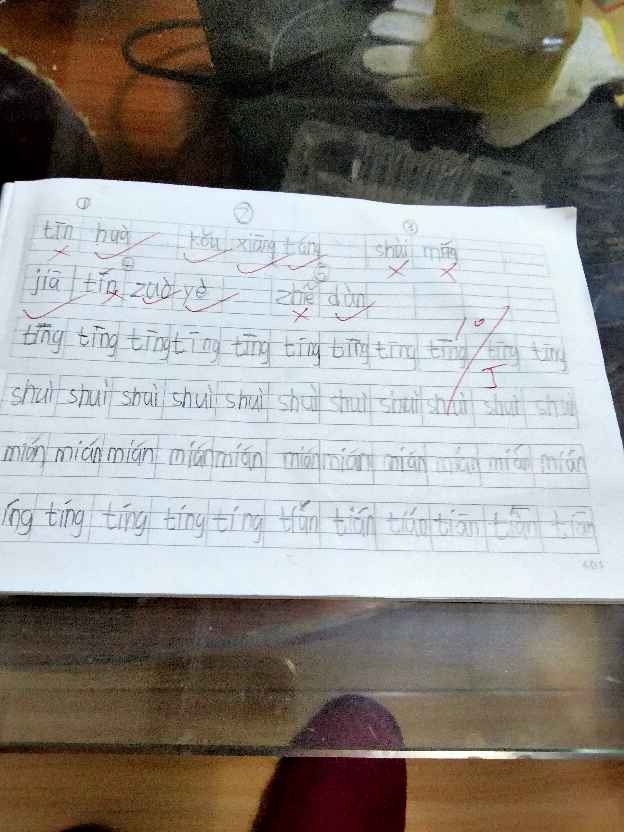 ① ② ③
tīn huà kǒu xiāng táng shùi mǐng
④ ⑤
jiā tín zuò yè zhě dùn
10
tīng tīng tīng tīng tīng tīng tīng tīng tīng tīng tīng
shuì shuì shuì shuì shuì shuì shuì shuì shuì shuì shuì
mián mián mián mián mián mián mián mián mián mián mián
íng tíng tíng tíng tíng tián tián tián tiān tiān tiān